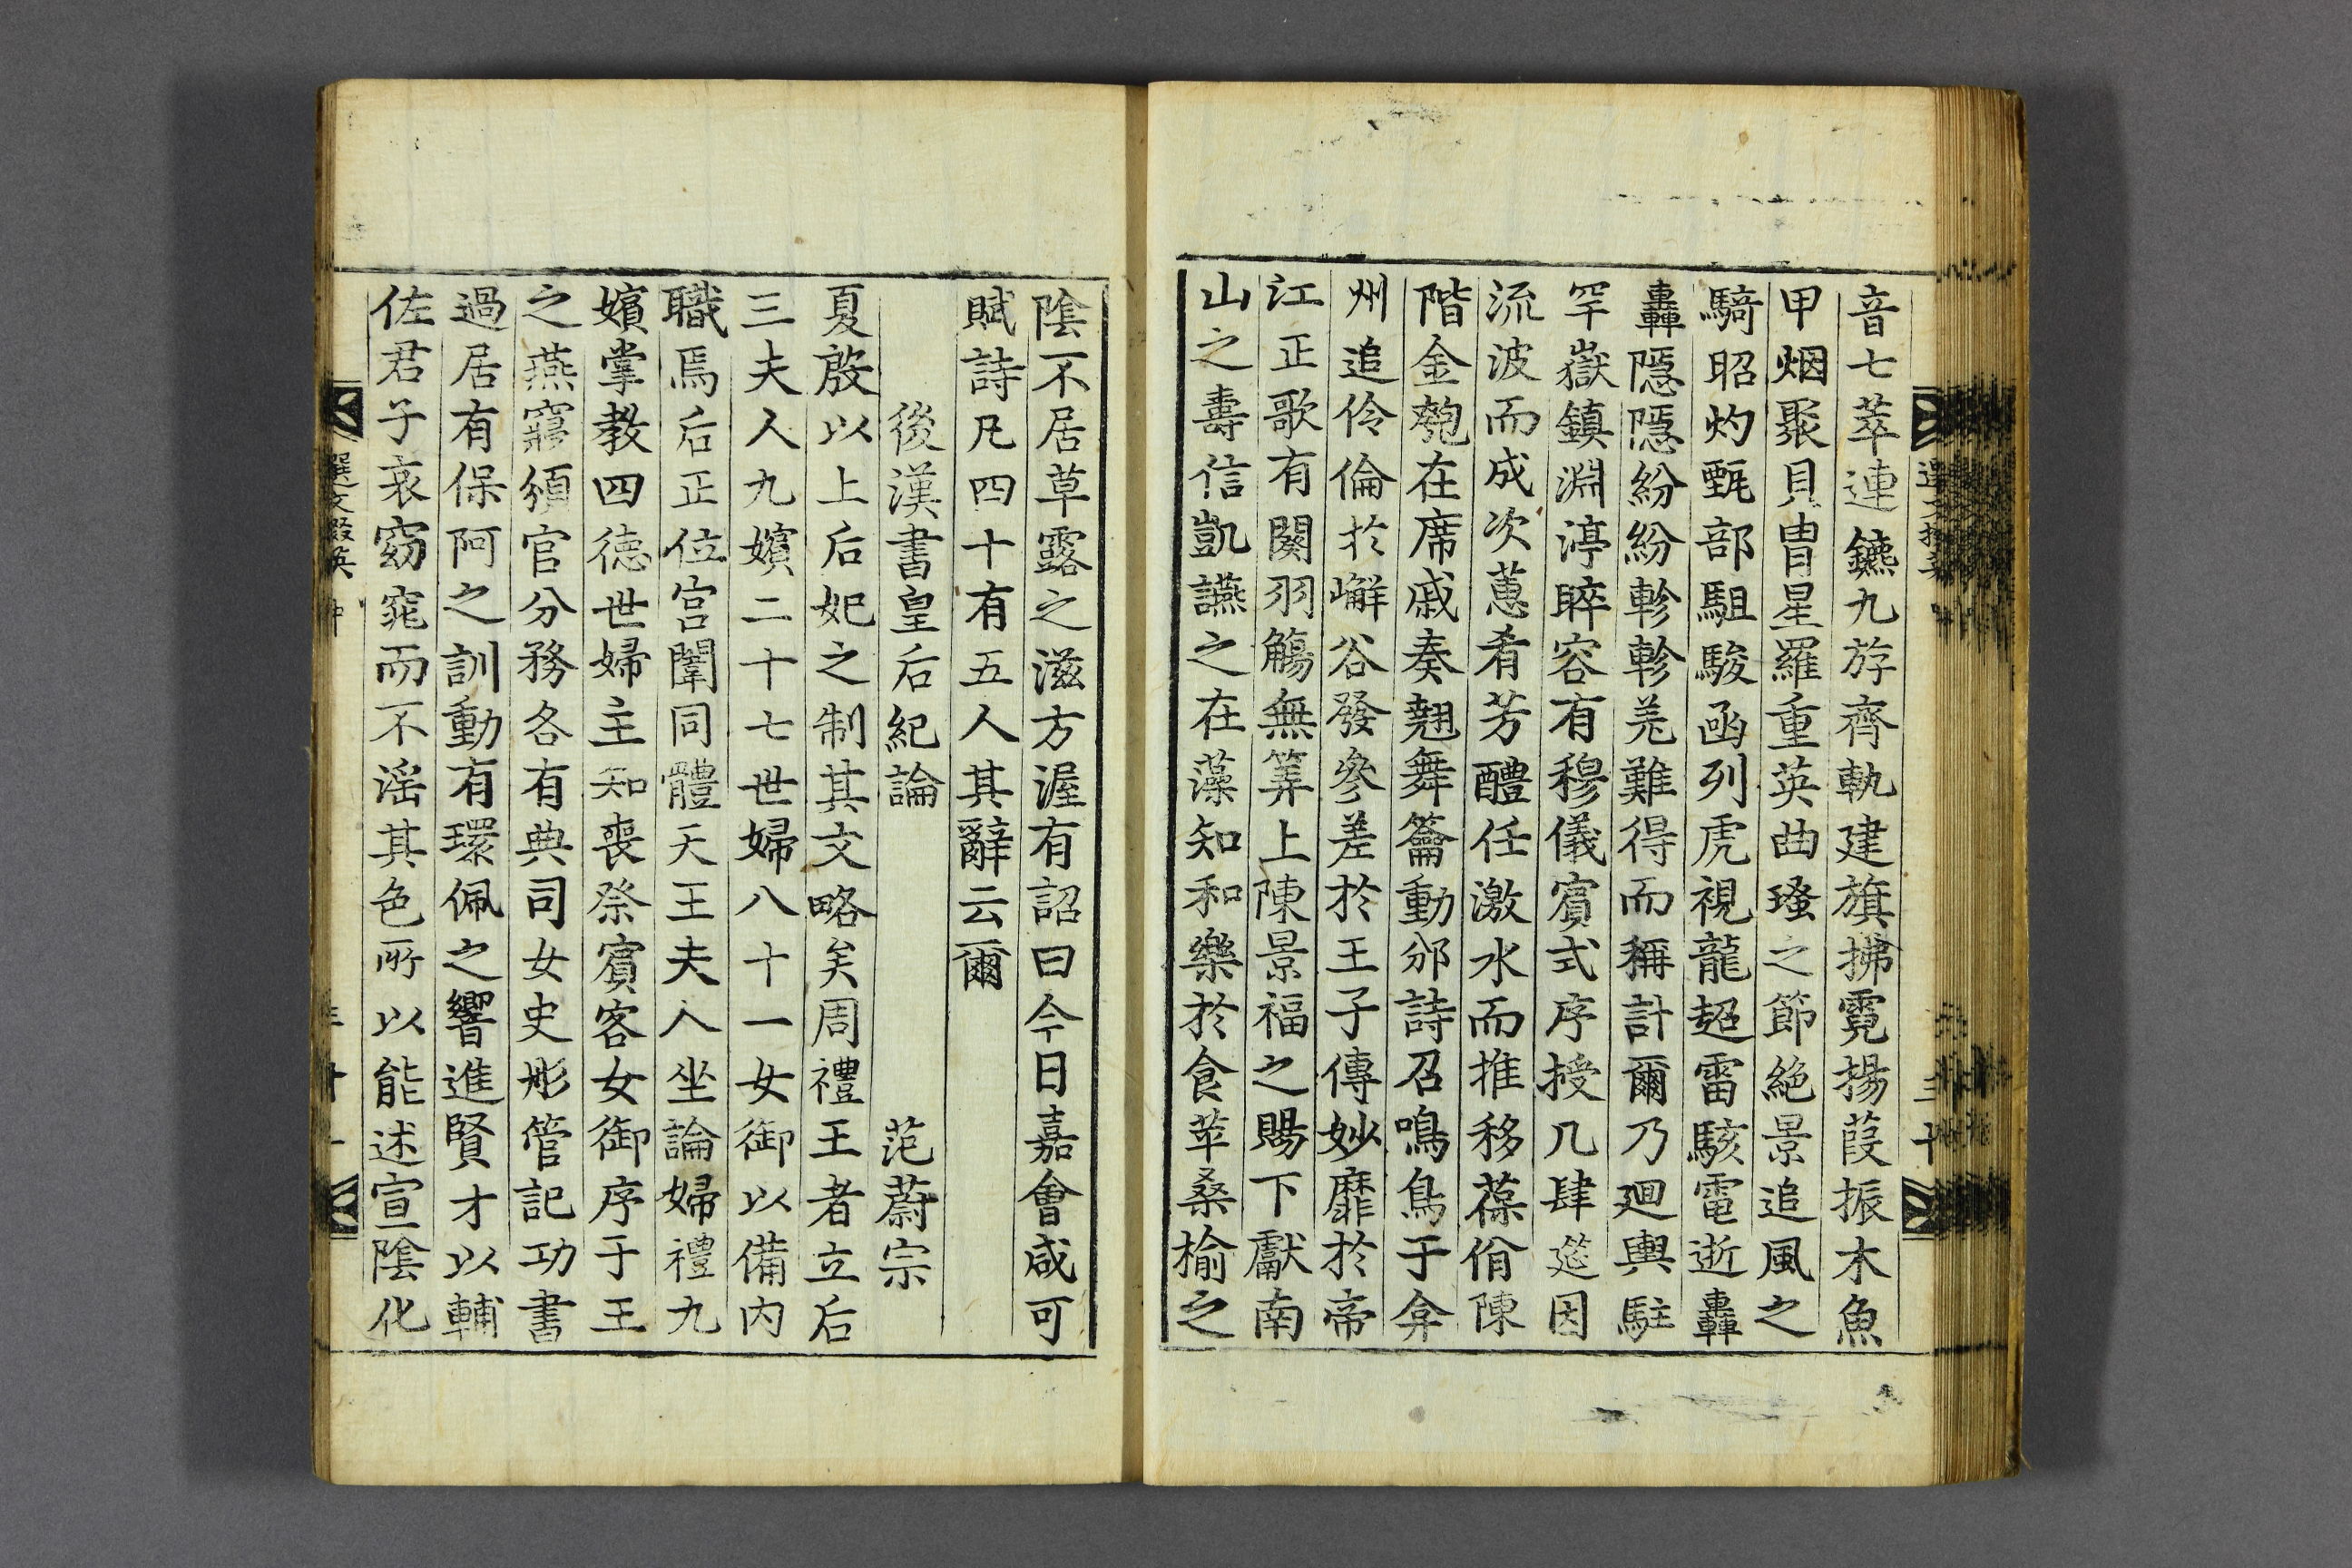 音七萃連鑣九斿齊軌建旗拂霓揚葭振木魚
甲烟聚貝胄星羅重英曲瑵之節絶景追風之
騎昭灼甄部駔駿函列虎視龍超雷駭電逝轟
轟隱隱紛紛軫軫羌難得而稱計爾乃廻輿駐
罕嶽鎮淵渟睟容有穆儀賓式序授几肆筵因
流波而成次蕙肴芳醴任激水而推移葆佾陳
階金瓠在席戚奏翹舞籥動邠詩召鳴鳥于弇
州追伶倫於嶰谷發參差於王子傳妙靡於帝
江正歌有闋羽觴無筭上陳景福之賜下獻南
山之壽信凱讌之在藻知和樂於食苹桑榆之
陰不居草露之滋方渥有詔曰今日嘉會咸可
賦詩凡四十有五人其辭云爾
後漢書皇后紀論 范蔚宗
夏殷以上后妃之制其文略矣周禮王者立后
三夫人九嬪二十七世婦八十一女御以備内
職焉后正位宮闈同體天王夫人坐論婦禮九
嬪掌教四德世婦主知喪祭賓客女御序于王
之燕寢頒官分務各有典司女史彤管記功書
過居有保阿之訓動有環佩之響進賢才以輔
佐君子哀窈窕而不淫其色所以能述宣陰化
選文掇英 中
三十